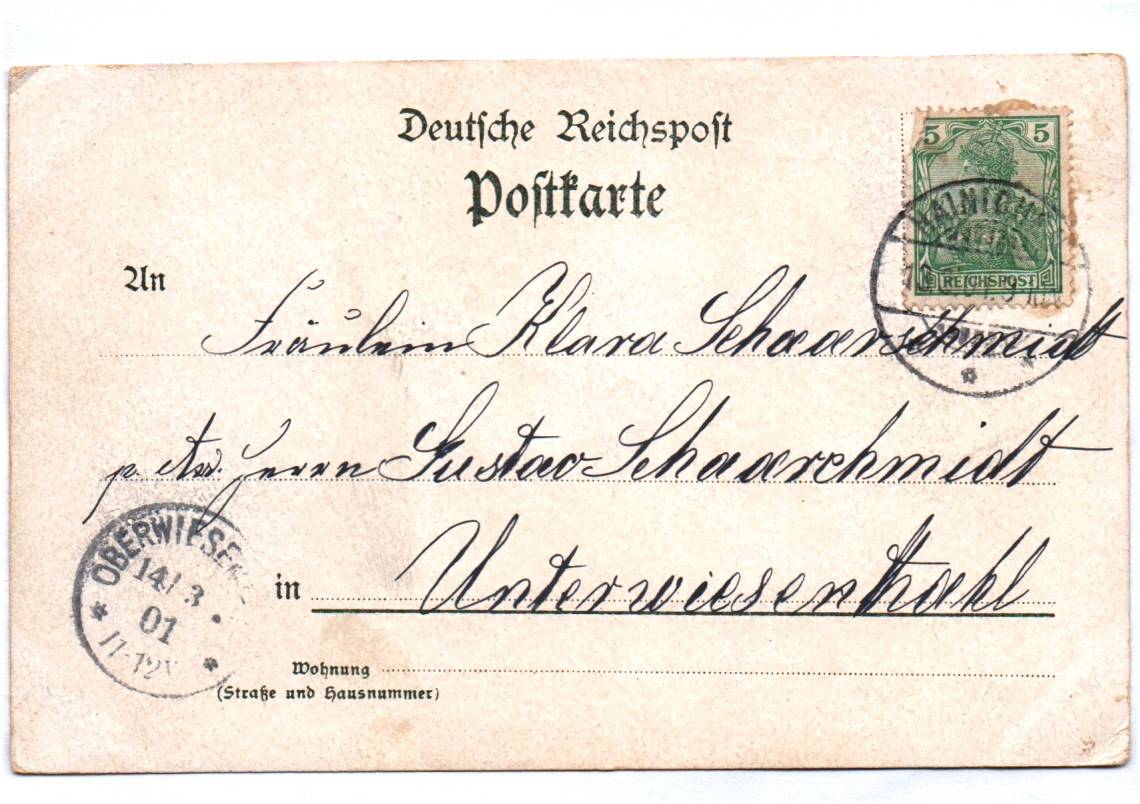 Deutsche Reichspost
Postkarte
5 5
REICHSPOST
An
Fräulein Klara Schaarschmidt
Herrn Gustav Schaarchmidt
in Unterwiesenthahl
OBERWIESEN
14/3
01
11-12V
Wohnung
(Straße und Hausnummer)